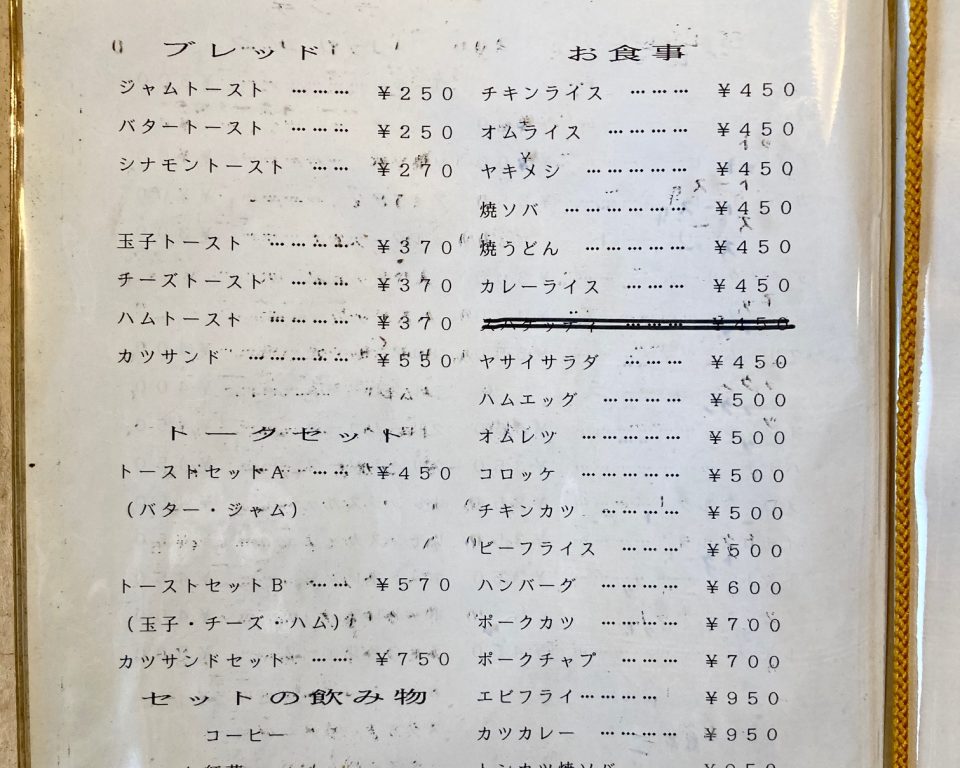 ブレッド
ジャムトースト ……… ¥250
バタートースト ……… ¥250
シナモントースト …… ¥270
玉子トースト ………… ¥370
チーズトースト ……… ¥370
ハムトースト ………… ¥370
カツサンド …………… ¥550
トータセット
トーストセットA …… ¥450
(バター・ジャム)
トーストセットB …… ¥570
(玉子・チーズ・ハム)
カツサンドセット …… ¥750
セットの飲み物
コーヒー
お食事
チキンライス ……… ¥450
オムライス ………… ¥450
ヤキメシ …………… ¥450
焼ソバ ……………… ¥450
焼うどん …………… ¥450
カレーライス ……… ¥450
スパゲッティ ……… ¥450
ヤサイサラダ ……… ¥450
ハムエッグ ………… ¥500
オムレツ …………… ¥500
コロッケ …………… ¥500
チキンカツ ………… ¥500
ビーフライス ……… ¥500
ハンバーグ ………… ¥600
ポークカツ ………… ¥700
ポークチャプ ……… ¥700
エビフライ………… ¥950
カツカレー ………… ¥950